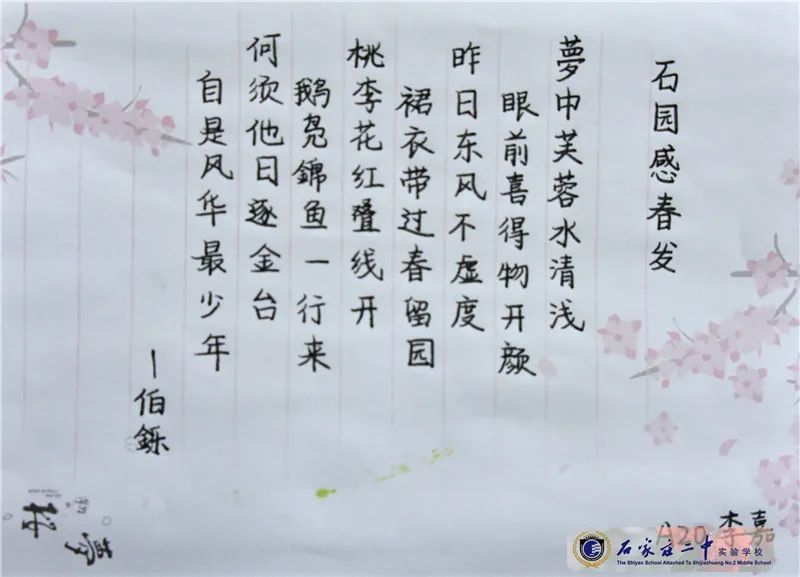 石园感春发
夢中芙蓉水清浅
眼前喜得物开颜
昨日东风不虚度
裙衣带过春留园
桃李花红叠线开
鹅凫錦鱼一行来
何须他日逐金台
自是风华最少年
—伯鑠
A20 李嘉
石家庄二中 实验学校
The Shiyan School Attached To Shijiazhuang No.2 Middle School